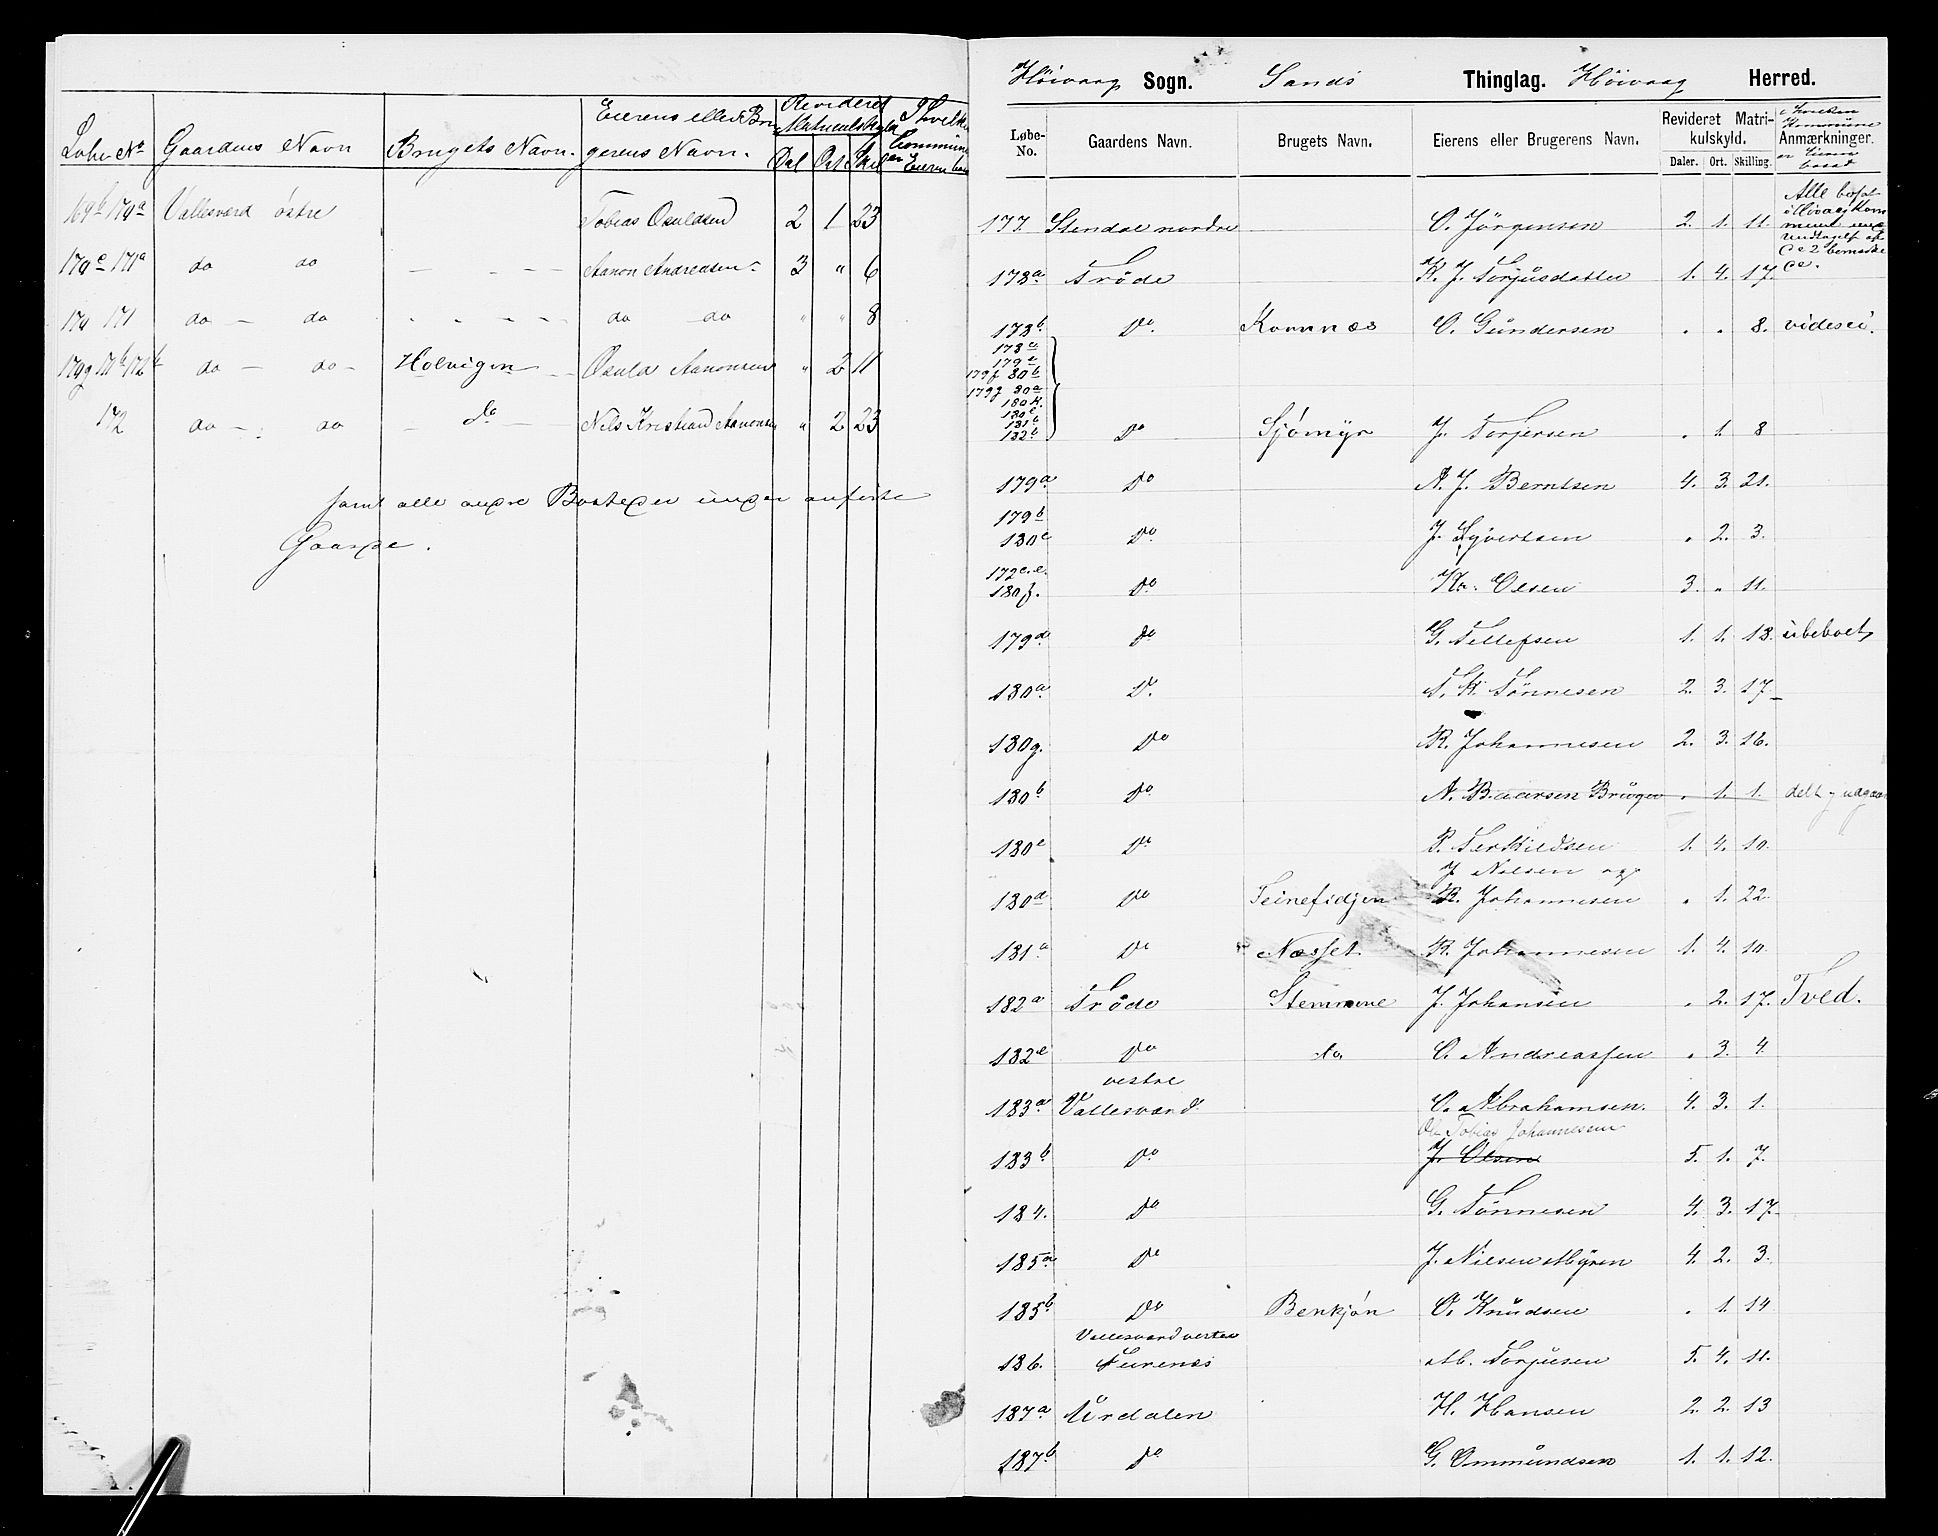 Løbe No Gaardens Navn Brugets Navn. Eierens eller Bru-
gerens Navn. Revideret
Matriculskyld
Dal Ort Skil I hvilken
Commune
er Eieren bo
169b 170a Vallesværd østre Tobias Osuldsen 2 1 23
170c 171a do do Aanon Andreasen 3 " 6
170 171 do do do do " " 8
170g 171b 172b do do Holvigen Osuld Aanonsen " 2 11
172 do do do Nils Kristian Aanonsen " 2 23
samt alle andre Bosteder under anførte
Gaarde.
Høivaag Sogn. Sands Thinglag. Høivaag Herred.
Løbe-No. Gaardens Navn. Brugets Navn. Eierens eller Brugerens Navn. Revideret Matrikulskyld. Daler. Ort. Skilling. Anmærkninger.
I hvilken Kommune er Eieren bosat
177. Stendal nordre O. Jörgensen 2. 1. 11.
Alle bosat
i Høivaag Kom
178a Tröde K. J. Torjusdatter 1. 4. 17.
178b Do. Kvennes O. Gundersen . . 8. videsei.
178c
179e
179f 80b
179g 80a
180k.
180l
181b
182b Do Sjömyr J. Torjersen . 1. 8
179a Do A. J. Berntsen 4. 3. 21.
179b
180c Do. J. Syvertsen . 2. 3.
179c.e.
180f. Do. Kr. Olsen 3. . 11.
179d Do G. Tellefsen 1. 1. 13. ubeboet
180a D. T. K. Tönnesen 2. 3. 17.
180g. Do R. Johannesen 2. 3. 16.
180b Do A. Baarsen Bringe . 1. 1. delt
180e Do P. Terkildsen 1. 4. 10.
J Nilsen og
180d Do Teinefidjen R. Johannesen . 1. 22.
181a Do Næsset R. Johannesen 1. 4. 10.
182a Tröde Stemmene J. Johansen . 2. 17. Tved.
182c Do do O. Andreassen . 3. 4.
vestre
183a Vallesværd O. Abrahamsen. 4. 3. 1.
Tobias Johannesen
183b Do J. Olsen 5. 1. 7.
184. Do G. Tönnesen 4. 3. 17.
185a Do J. Nilsen Myren 4. 2. 3.
185b Do Benkjön O. Knudsen . 1. 14
Vallesværd vestre
186. Furenes M. Torjusen 5. 4. 11.
187a Urdalen H. Hansen 2. 2. 13
187b Do G. Ommundsen 1. 1. 12.